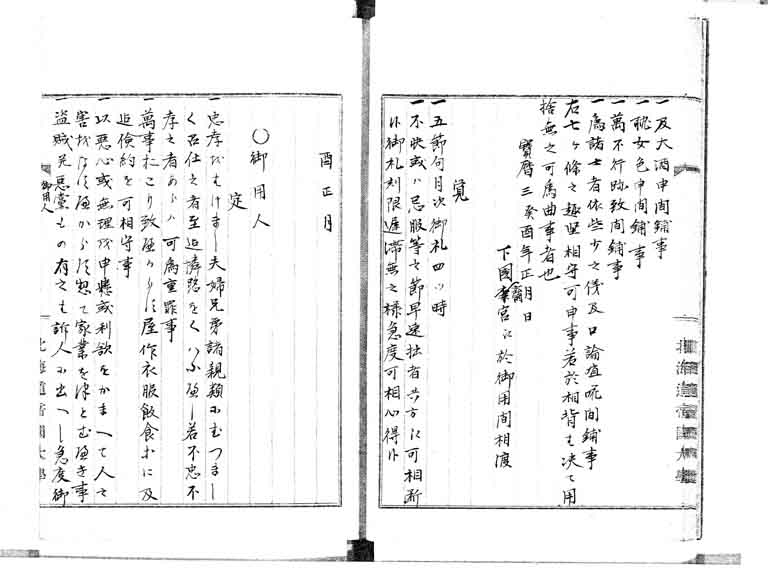 一及大酒申間鋪事
一耽女色申間鋪事
一萬不行跡致間鋪事
一為諸士者依些少之儀及口論喧呱間鋪事
右七ヶ條之趣堅相守可申事若於相背は决て用
捨無之可為曲事者也
寶暦三癸酉年正月日
下國宮に於御用間相渡
覚
一五節句月次御礼四ツ時
一不快或ハ忌服等之節早速拙者共方に可相断
但御礼刻限遅滞無之様急度可相心得事
酉正月
〇御用人
定
一忠孝をはけまし夫婦兄弟諸親類にむつまし
く召仕之者至迄憐愍をくハふへし若不忠不
孝之者あらハ可為重罪事
一萬事おこり致へからす屋作衣服飲食等に及
迄倹約を可相守事
一以悪心或無理或申掛或利欲をかまへて人之
害をなすへからす惣て家業を律とむへき事
一盗賊并悪黨もの有之は訴人に出へし急度御
御用人
北海道帝國大學